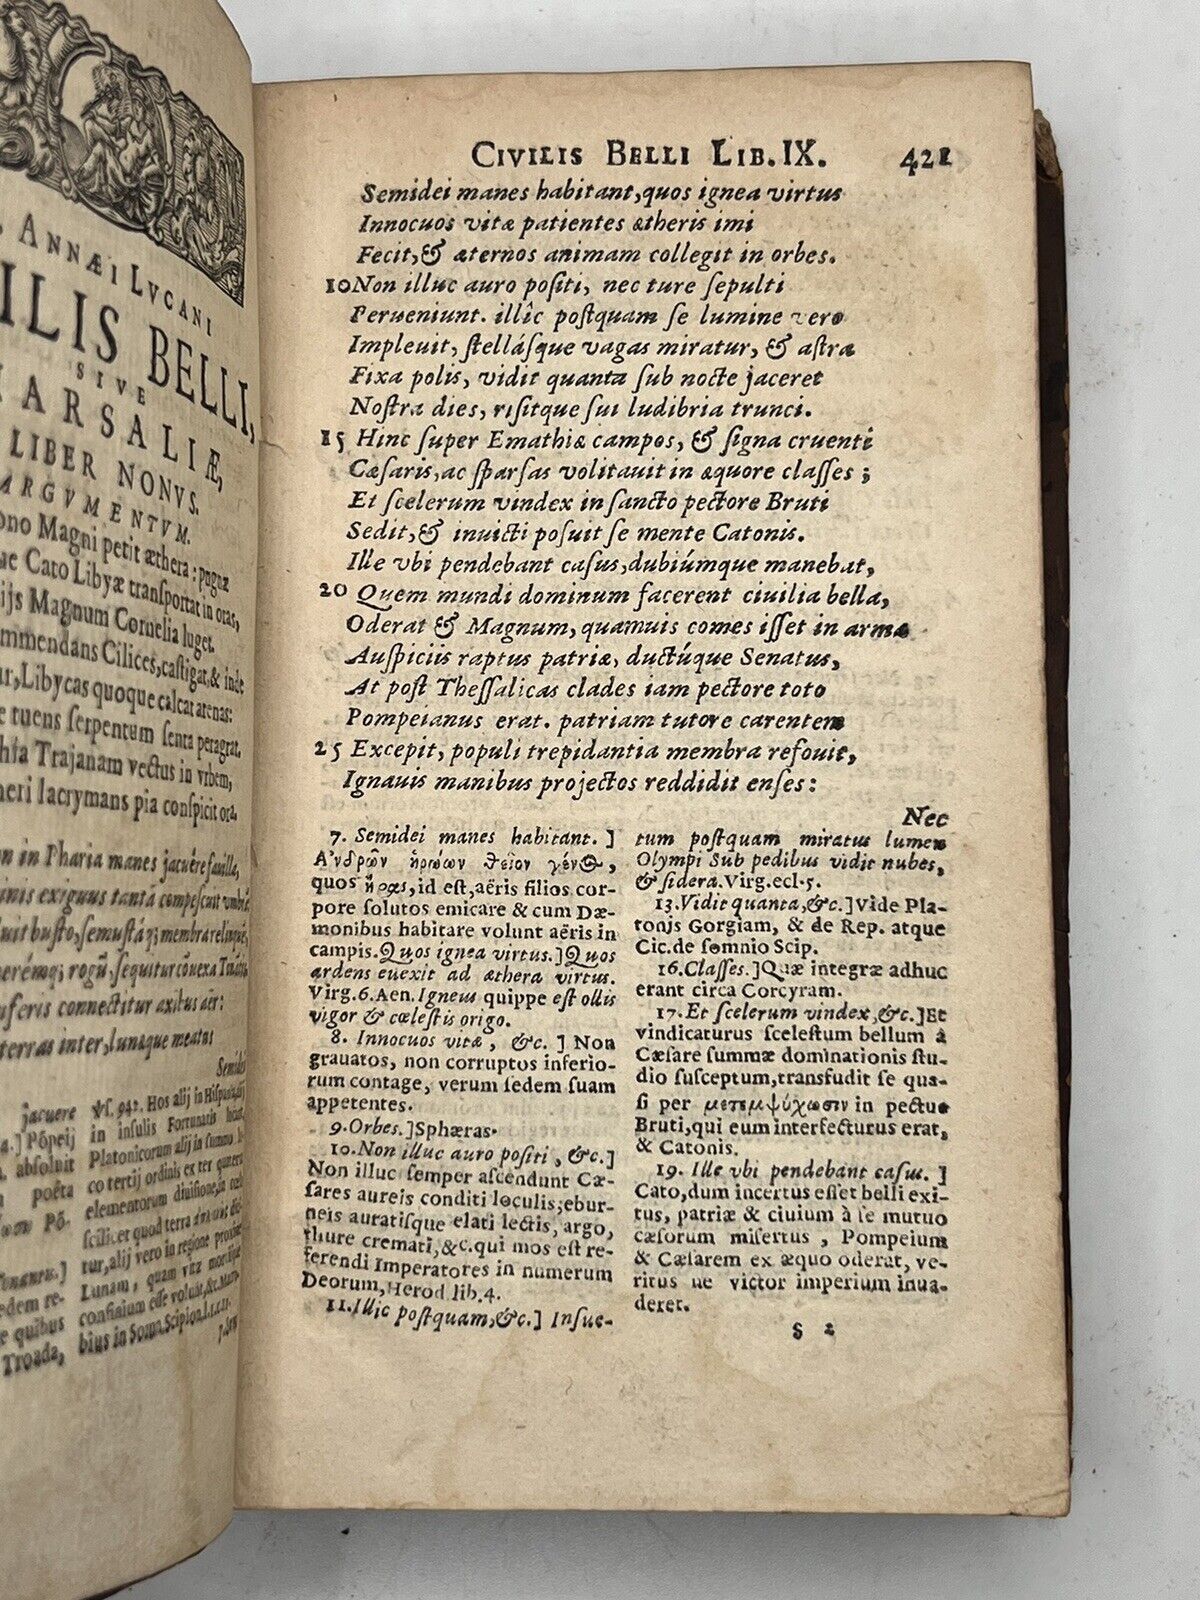 . ANNÆI LVCANI
ILIS BELLI,
SIVE
ARSALIÆ,
LIBER NONVS.
ARGVMENTVM.
ono Magni petit æthera: pugnæ
ue Cato Libyæ tranſportat in oras,
ijs Magnum Cornelia luget.
mmendans Cilices, caſtigat, & inde
ur, Libycas quoque calcat arenas:
e tuens ſerpentum ſenta peragrat.
Trajanam vectus in vrbem,
neri lacrymans pia conſpicit ora.
on in Pharia manes jacuêre fauilla,
inis exiguus tantã compeſcuit vmbrã
luit buſto, ſemuſtáq; membra relinquẽs,
erémq; rogũ, ſequitur cõuexa
uferis connectitur axibus aër:
terras inter, lunæque meatus
Semidei
jacuere
a.] Põpeij
abſoluit
poëta
Põ-
edem re-
e quibus
Troada,
ꝟſ. 942. Hos alij in
in inſulis Fortunatis
Platonicorum alij in ſummo
co tertij ordinis ex ter quatern
elementorum diuiſione, in
ſcilicet quod terra
tur, alij vero in regione proxime
Lunam, quam vitæ mortiſque
confinium eſſe voluit, &c. Macro-
bius in Somn. Scipion. l.
CIVILIS BELLI LIB. IX. 421
Semidei manes habitant, quos ignea virtus
Innocuos vitæ patientes ætheris imi
Fecit, & æternos animam collegit in orbes.
10 Non illuc auro poſiti, nec ture ſepulti
Perueniunt. illîc poſtquam ſe lumine vero
Impleuit, ſtellásque vagas miratur, & aſtra
Fixa polis, vidit quanta ſub nocte jaceret
Noſtra dies, riſitque ſui ludibria trunci.
15 Hinc ſuper Emathiæ campos, & ſigna cruenti
Cæſaris, ac ſparſas volitauit in æquore claſſes;
Et ſcelerum vindex in ſancto pectore Bruti
Sedit, & inuicti poſuit ſe mente Catonis.
Ille vbi pendebant caſus, dubiúmque manebat,
20 Quem mundi dominum facerent ciuilia bella,
Oderat & Magnum, quamuis comes iſſet in arma
Auſpiciis raptus patriæ, ductúque Senatus,
At poſt Theſſalicas clades iam pectore toto
Pompeianus erat. patriam tutore carentem
25 Excepit, populi trepidantia membra refouit,
Ignauis manibus projectos reddidit enſes:
Nec
7. Semidei manes habitant.]
Ἀνδρῶν ἡρώων θεῖον γένος,
quos ἥρως, id eſt, aëris filios cor-
pore ſolutos emicare & cum Dæ-
monibus habitare volunt aëris in
campis. Quos ignea virtus.] Quos
ardens euexit ad æthera virtus.
Virg. 6. Aen. Igneus quippe eſt ollis
vigor & cœleſtis origo.
8. Innocuos vitæ, &c.] Non
grauatos, non corruptos inferio-
rum contage, verum ſedem ſuam
appetentes.
9. Orbes.] Sphæras.
10. Non illuc auro poſiti, &c.]
Non illuc ſemper aſcendunt Cæ-
ſares aureis conditi loculis; ebur-
neis auratiſque elati lectis, argo,
thure cremati, &c. qui mos eſt re-
ferendi Imperatores in numerum
Deorum, Herod lib. 4.
11. Illic poſtquam, &c.] Inſue-
tum poſtquam miratus lumen
Olympi Sub pedibus vidit nubes,
& ſidera. Virg. ecl. 5.
13. Vidit quanta, &c.] Vide Pla-
tonjs Gorgiam, & de Rep. atque
Cic. de ſomnio Scip.
16. Claſſes.] Quæ integræ adhuc
erant circa Corcyram.
17. Et ſcelerum vindex, &c.] Et
vindicaturus ſceleſtum bellum à
Cæſare ſummæ dominationis ſtu-
dio ſuſceptum, transfudit ſe qua-
ſi per μετεμψύχωσιν in pectus
Bruti, qui eum interfecturus erat,
& Catonis.
19. Ille vbi pendebant caſus.]
Cato, dum incertus eſſet belli exi-
tus, patriæ & ciuium à ſe mutuo
cæſorum miſertus, Pompeium
& Cæſarem ex æquo oderat, ve-
ritus ne victor imperium inua-
deret.
S 2